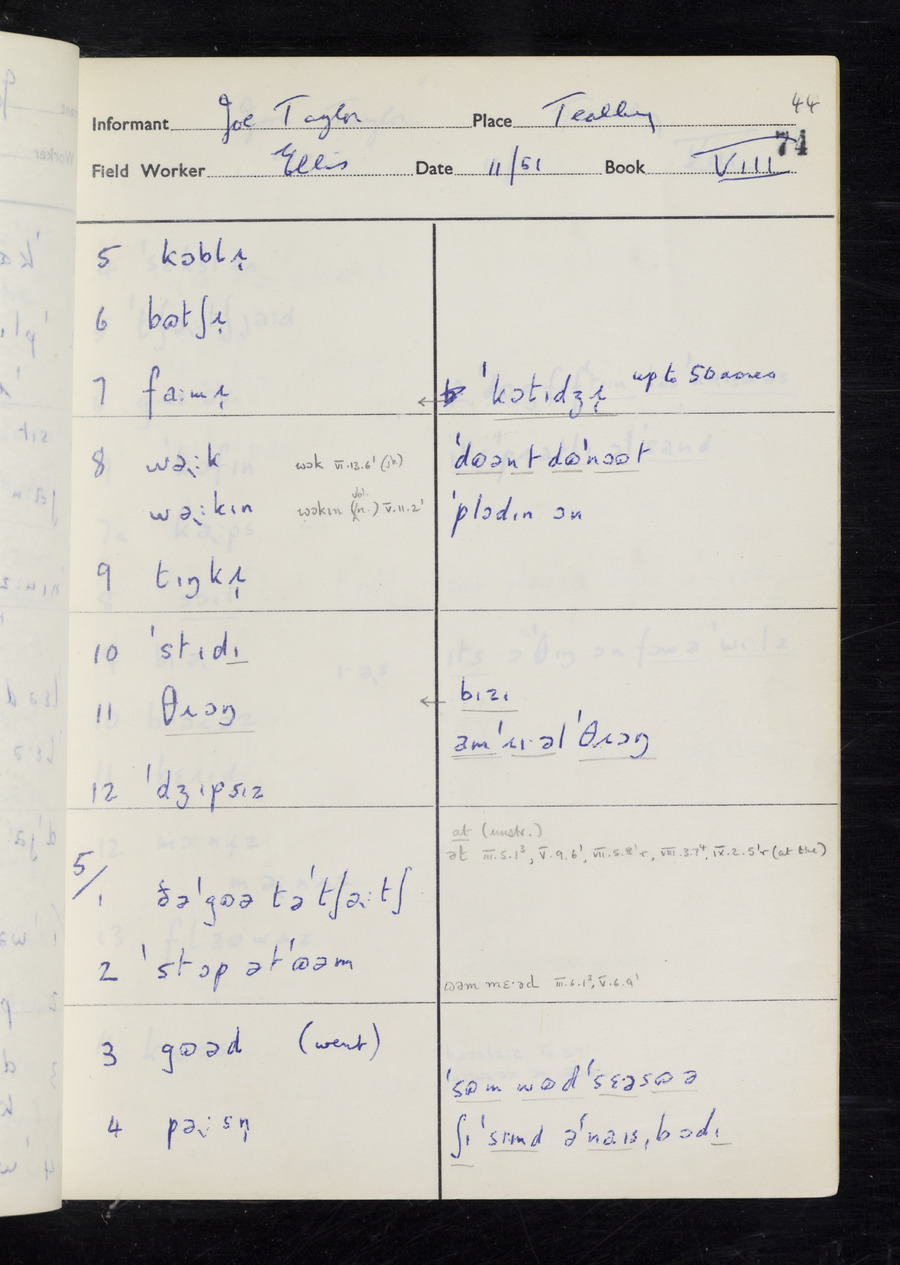 44
Informant Joe Taylor Place Tealby
74
Field Worker Ellis Date 11/51 Book VIII
5 kɔblɹ̩
6 bɷtʃɹ̩
7 fa:mɹ̩
'kɔtɪdʒɹ̩ up to 50 acres
8 wəɹ:k wək VI.13.6' (sh)
'dɷənt dɷ'nɔət
wəɹ:kɪn wəkɪn (vbl. n.) V.11.2'
'plɔdɪn ɔn
9 tɪŋkɹ̩
10 'stɪdɪ
11 θɹɔŋ
bɪzɪ
am'ɹɪəl 'θɹɔŋ
12 'dʒɪpsɪz
at (unstr.)
ət III.5.1³, V.9.6', VII.5.8'r, VIII.3.7⁴, IX.2.5'r (at the)
5/
1 ðə'gɷə tə'tʃəɹ:tʃ
2 'stɔp ət'ɷəm
ɷəm mɛ·əd III.6.1², V.6.9'
3 gɷəd (went)
'sɷm wɷd 'sɛəsɷə
4 pəɹ:sn̩
ʃɪ 'sɪmd ə'naɪs,bɔdɪ